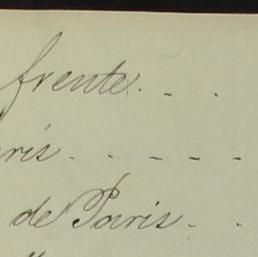 frente. . .
ris. . - - -
de Paris. .